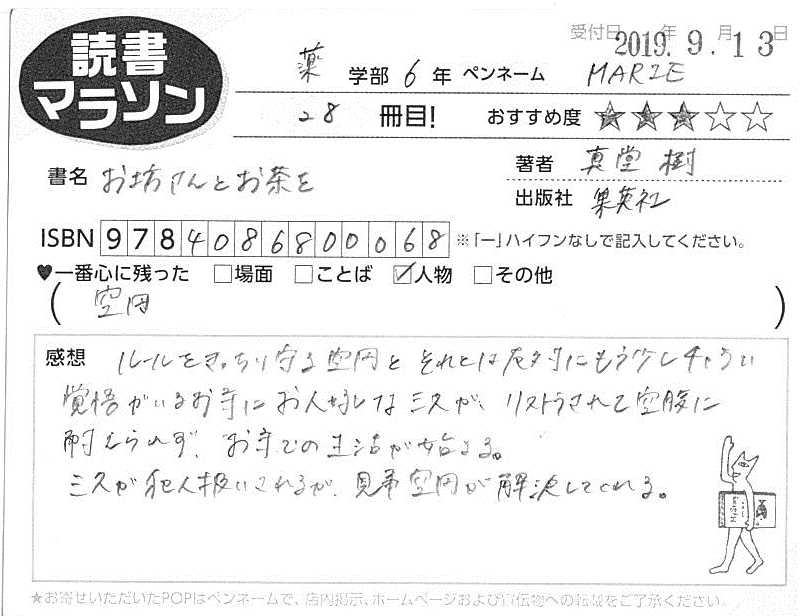 読書
マラソン
受付日 2019年 9月 13日
薬 学部 6 年 ペンネーム MARIE
28 冊目! おすすめ度 ★★★☆☆
書名 お坊さんとお茶を
著者 真堂 樹
出版社 集英社
ISBN 9784086800068 ※「ー」ハイフンなしで記入してください。
♥一番心に残った □場面 □ことば ☑人物 □その他
(空円)
感想 ルールをきっちり守る空円とそれとは反対にもう少しチャラい
覚悟がいるお寺にお人好しな三久が、リストラされて空腹に
耐えられず、お寺での生活が始まる。
三久が犯人扱いされるが、見事空円が解決してくれる。
★お寄せいただいたPOPはペンネームで、店内掲示、ホームページおよび宣伝物への転載をご了承ください。